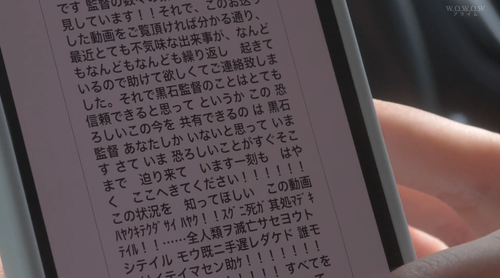 WOWOW
プライム
見しています！！それで、このお送り
した動画をご覧頂ければ分かる通り、
最近とても不気味な出来事が、なんど
もなんどもなんども繰り返し　起きて
いるので助けて欲しくてご連絡致しま
した。それで黒石監督のことはとても
信頼できると思って というか この 恐
ろしいこの今を 共有できるの は 黒石
監督 あなたしか いないと思って いま
す さて いま 恐ろしいことがすぐそこ
まで　迫り来て　います一刻も　はや
く　ここへきてください！！！！！！
この状況を　知ってほしい　この動画
ハヤクキテクダ サイ ハヤク！！スグニ死ガ 其処マデキ
テイル！！……全人類ヲ滅亡サセヨウト
シテイル モウ既ニ手遅レダケド 誰モ
イマセン助ケ！！！！！！！すべてを